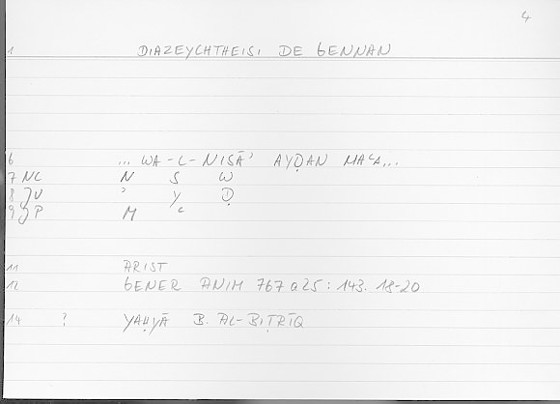 4
1 DIAZEYCHTHEISI DE GENNAN
6 ... WA-L-NISĀʾ AYḌAN MAʿA...
7 NC N S W
8 JU ʾ Y Ḍ
9 JP M ʿ
11 ARIST
12 GENER ANIM 767 a25 : 143. 18-20
14 ? YAḤYĀ B. AL-BIṬRĪQ